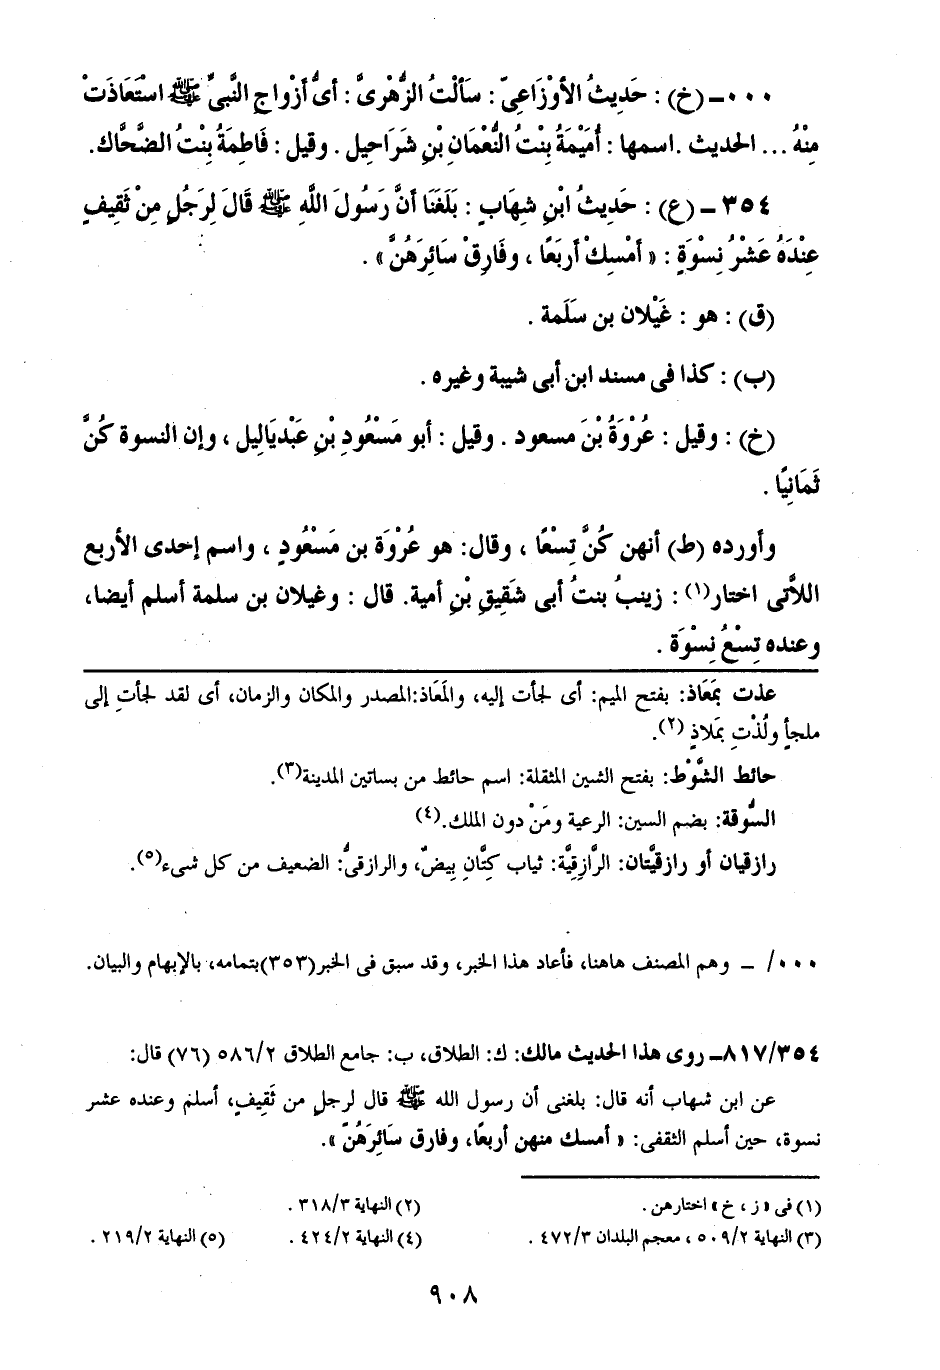 ٠٠٠ـ (خ) : حَدِيثُ الأَوْزَاعِيّ : سَأَلْتُ الزُّهْرِىَّ : أىُّ أَزْوَاجِ النَّبِىِّ ﷺ اسْتَعَاذَتْ
مِنْهُ ... الحديث .اسمها : أُمَيْمَةُ بِنْتُ النُّعْمَانِ بْنِ شَرَاحِيل . وقيل : فَاطِمَةُ بِنْتُ الضَّحَّاك.
٣٥٤ ـ (ع) : حَدِيثُ ابْنِ شِهَابٍ : بَلَغَنَا أنَّ رَسُولَ اللَّهِ ﷺ قَالَ لِرَجُلٍ مِنْ ثَقِيفٍ
عِنْدَهُ عَشْرُ نِسْوَةٍ : « أَمْسِكْ أَرْبَعًا ، وفَارِقْ سَائِرَهُنَّ » .
(ق) : هو : غَيْلان بن سَلَمة .
(ب) : كذا فى مسند ابن أبى شيبة وغيره .
(خ) : وقيل : عُرْوَةُ بْنَ مسعود . وقيل : أبو مَسْعُودِ بْنِ عَبْدِيَالِيل ، وإن النسوة كُنَّ
ثَمَانِيًا .
وأورده (ط) أنهن كُنَّ تِسْعًا ، وقال: هو عُرْوَة بن مَسْعُودٍ ، واسم إحدى الأربع
اللاَّتى اختار(١) : زينبُ بنتُ أبى شَقِيقِ بْنِ أمية. قال : وغيلان بن سلمة أسلم أيضا،
وعنده تِسْعُ نِسْوَة .
عذت بمَعَاذ: بفتح الميم: أى لجأت إليه، والمَعَاذ:المصدر والمكان والزمان، أى لقد لجأتِ إلى
ملجأٍ ولُذْتِ بمَلاذٍ (٢).
حائط الشَّوْط: بفتح الشين المثقلة: اسم حائط من بساتين المدينة(٣).
السُّوقة: بضم السين: الرعية ومَنْ دون الملك.(٤)
رازقيان أو رازقيَّتان: الرَّازِقِيَّة: ثياب كتَّانٍ بِيضٌ، والرازقىُّ: الضعيف من كل شىء(٥).
٠٠٠/ ـ وهم المصنف هاهنا، فأعاد هذا الخبر، وقد سبق فى الخبر(٣٥٣)بتمامه، بالإبهام والبيان.
٨١٧/٣٥٤ـ روى هذا الحديث مالك: ك: الطلاق، ب: جامع الطلاق ٥٨٦/٢ (٧٦) قال:
عن ابن شهاب أنه قال: بلغنى أن رسول الله ﷺ قال لرجلٍ من ثَقِيفٍ، أسلم وعنده عشر
نسوة، حين أسلم الثقفى: « أمسك منهن أربعًا، وفارق سَائِرَهُنّ ».
(١) فى « ز ، خ » اختارهن . (٢) النهاية ٣١٨/٣ .
(٣) النهاية ٥٠٩/٢ ، معجم البلدان ٤٧٢/٣ . (٤) النهاية ٤٢٤/٢ . (٥) النهاية ٢١٩/٢ .
٩٠٨